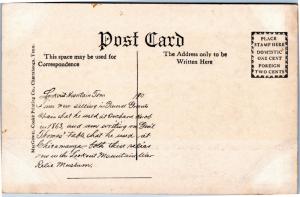 Post Card
This space may be used for
Correspondence
The Address only to be
Written Here
PLACE
STAMP HERE
DOMESTIC
ONE CENT
FOREIGN
TWO CENTS
Lookout Mountain Tenn 190
I am now setting in
chair that he used at Orchard Knob
in 1863, and am writing on Genl
Thomas' Table that he used at
Chicamauga - both these relics
now in the Lookout Mountain
Relic Museum.